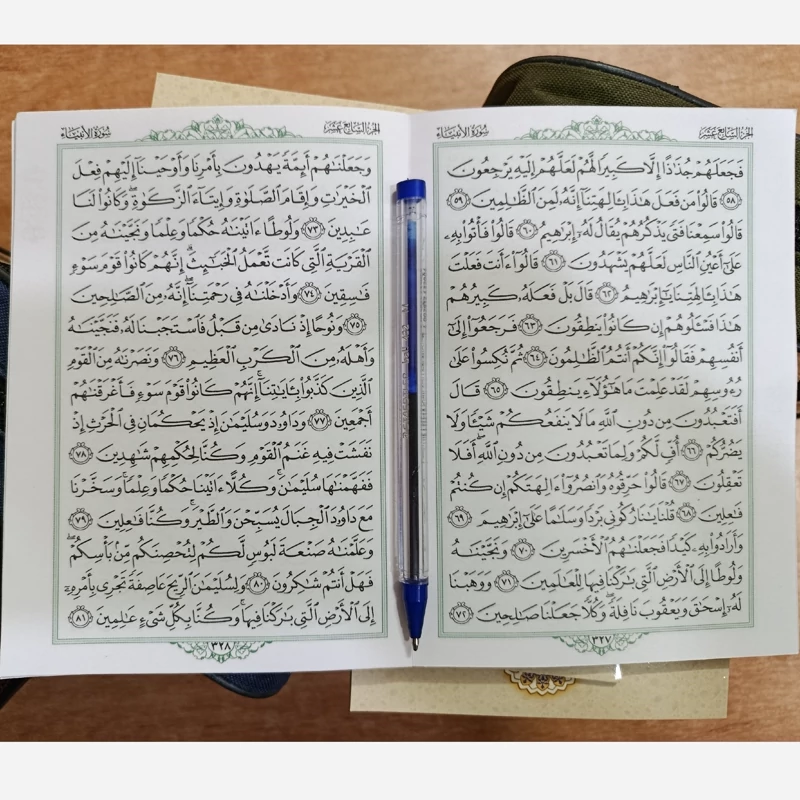 الجزء السابع عشر
سورة الأنبياء
فَجَعَلَهُمْ جُذَٰذًا إِلَّا كَبِيرًا لَّهُمْ لَعَلَّهُمْ إِلَيْهِ يَرْجِعُونَ
﴿٥٨﴾ قَالُوا۟ مَن فَعَلَ هَٰذَا بِـَٔالِهَتِنَآ إِنَّهُۥ لَمِنَ ٱلظَّٰلِمِينَ ﴿٥٩﴾
قَالُوا۟ سَمِعْنَا فَتًى يَذْكُرُهُمْ يُقَالُ لَهُۥٓ إِبْرَٰهِيمُ ﴿٦٠﴾ قَالُوا۟ فَأْتُوا۟ بِهِۦ
عَلَىٰٓ أَعْيُنِ ٱلنَّاسِ لَعَلَّهُمْ يَشْهَدُونَ ﴿٦١﴾ قَالُوٓا۟ ءَأَنتَ فَعَلْتَ
هَٰذَا بِـَٔالِهَتِنَا يَٰٓإِبْرَٰهِيمُ ﴿٦٢﴾ قَالَ بَلْ فَعَلَهُۥ كَبِيرُهُمْ
هَٰذَا فَسْـَٔلُوهُمْ إِن كَانُوا۟ يَنطِقُونَ ﴿٦٣﴾ فَرَجَعُوٓا۟ إِلَىٰٓ
أَنفُسِهِمْ فَقَالُوٓا۟ إِنَّكُمْ أَنتُمُ ٱلظَّٰلِمُونَ ﴿٦٤﴾ ثُمَّ نُكِسُوا۟ عَلَىٰ
رُءُوسِهِمْ لَقَدْ عَلِمْتَ مَا هَٰٓؤُلَآءِ يَنطِقُونَ ﴿٦٥﴾ قَالَ
أَفَتَعْبُدُونَ مِن دُونِ ٱللَّهِ مَا لَا يَنفَعُكُمْ شَيْـًٔا وَلَا
يَضُرُّكُمْ ﴿٦٦﴾ أُفٍّ لَّكُمْ وَلِمَا تَعْبُدُونَ مِن دُونِ ٱللَّهِ أَفَلَا
تَعْقِلُونَ ﴿٦٧﴾ قَالُوا۟ حَرِّقُوهُ وَٱنصُرُوٓا۟ ءَالِهَتَكُمْ إِن كُنتُمْ
فَٰعِلِينَ ﴿٦٨﴾ قُلْنَا يَٰنَارُ كُونِى بَرْدًا وَسَلَٰمًا عَلَىٰٓ إِبْرَٰهِيمَ ﴿٦٩﴾
وَأَرَادُوا۟ بِهِۦ كَيْدًا فَجَعَلْنَٰهُمُ ٱلْأَخْسَرِينَ ﴿٧٠﴾ وَنَجَّيْنَٰهُ
وَلُوطًا إِلَى ٱلْأَرْضِ ٱلَّتِى بَٰرَكْنَا فِيهَا لِلْعَٰلَمِينَ ﴿٧١﴾ وَوَهَبْنَا
لَهُۥٓ إِسْحَٰقَ وَيَعْقُوبَ نَافِلَةً وَكُلًّا جَعَلْنَا صَٰلِحِينَ ﴿٧٢﴾
٣٢٧
الجزء السابع عشر
سورة الأنبياء
وَجَعَلْنَٰهُمْ أَئِمَّةً يَهْدُونَ بِأَمْرِنَا وَأَوْحَيْنَآ إِلَيْهِمْ فِعْلَ
ٱلْخَيْرَٰتِ وَإِقَامَ ٱلصَّلَوٰةِ وَإِيتَآءَ ٱلزَّكَوٰةِ وَكَانُوا۟ لَنَا
عَٰبِدِينَ ﴿٧٣﴾ وَلُوطًا ءَاتَيْنَٰهُ حُكْمًا وَعِلْمًا وَنَجَّيْنَٰهُ مِنَ
ٱلْقَرْيَةِ ٱلَّتِى كَانَت تَّعْمَلُ ٱلْخَبَٰٓئِثَ إِنَّهُمْ كَانُوا۟ قَوْمَ سَوْءٍ
فَٰسِقِينَ ﴿٧٤﴾ وَأَدْخَلْنَٰهُ فِى رَحْمَتِنَآ إِنَّهُۥ مِنَ ٱلصَّٰلِحِينَ
﴿٧٥﴾ وَنُوحًا إِذْ نَادَىٰ مِن قَبْلُ فَٱسْتَجَبْنَا لَهُۥ فَنَجَّيْنَٰهُ
وَأَهْلَهُۥ مِنَ ٱلْكَرْبِ ٱلْعَظِيمِ ﴿٧٦﴾ وَنَصَرْنَٰهُ مِنَ ٱلْقَوْمِ
ٱلَّذِينَ كَذَّبُوا۟ بِـَٔايَٰتِنَآ إِنَّهُمْ كَانُوا۟ قَوْمَ سَوْءٍ فَأَغْرَقْنَٰهُمْ
أَجْمَعِينَ ﴿٧٧﴾ وَدَاوُۥدَ وَسُلَيْمَٰنَ إِذْ يَحْكُمَانِ فِى ٱلْحَرْثِ إِذْ
نَفَشَتْ فِيهِ غَنَمُ ٱلْقَوْمِ وَكُنَّا لِحُكْمِهِمْ شَٰهِدِينَ ﴿٧٨﴾
فَفَهَّمْنَٰهَا سُلَيْمَٰنَ وَكُلًّا ءَاتَيْنَا حُكْمًا وَعِلْمًا وَسَخَّرْنَا
مَعَ دَاوُۥدَ ٱلْجِبَالَ يُسَبِّحْنَ وَٱلطَّيْرَ وَكُنَّا فَٰعِلِينَ ﴿٧٩﴾
وَعَلَّمْنَٰهُ صَنْعَةَ لَبُوسٍ لَّكُمْ لِتُحْصِنَكُم مِّنۢ بَأْسِكُمْ
فَهَلْ أَنتُمْ شَٰكِرُونَ ﴿٨٠﴾ وَلِسُلَيْمَٰنَ ٱلرِّيحَ عَاصِفَةً تَجْرِى بِأَمْرِهِۦٓ
إِلَى ٱلْأَرْضِ ٱلَّتِى بَٰرَكْنَا فِيهَا وَكُنَّا بِكُلِّ شَىْءٍ عَٰلِمِينَ ﴿٨١﴾
٣٢٨